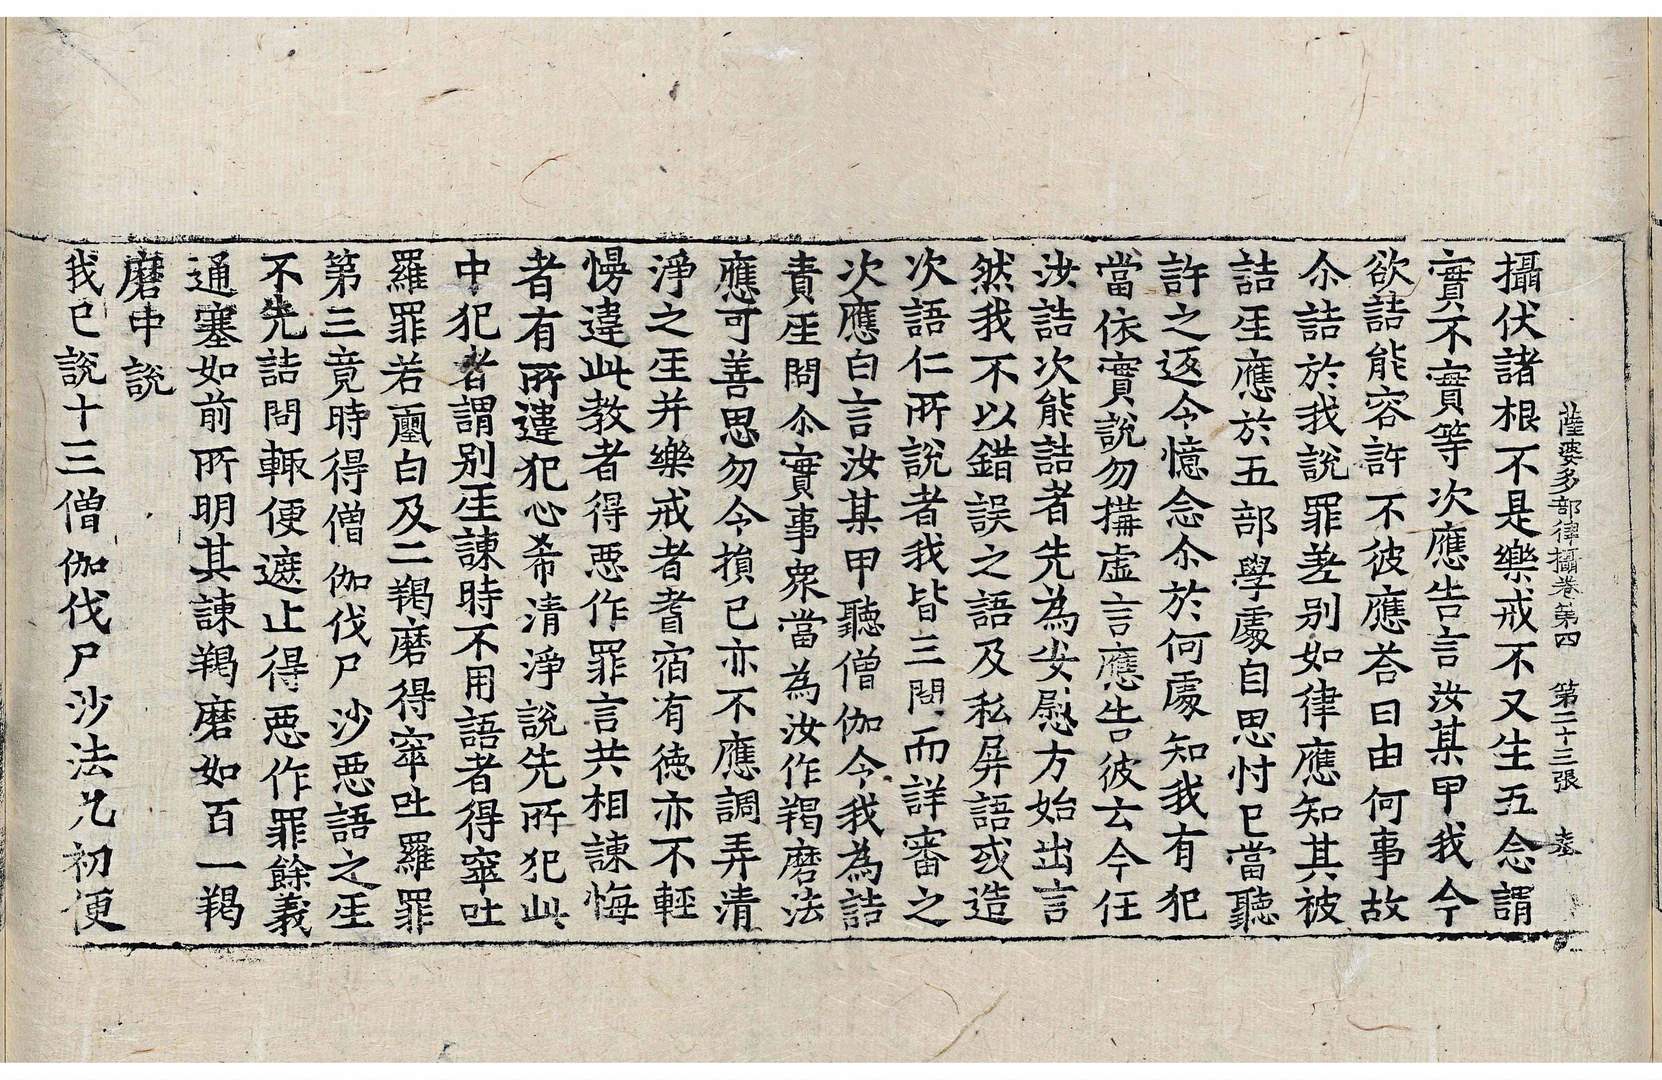 薩婆多部律攝卷第四　第二十三張
攝伏諸根不是樂戒不又生五念謂
實不實等次應告言汝某甲我今
欲詰能容許不彼應荅曰由何事故
尒詰於我說罪差別如律應知其被
詰𤯔應於五部學處自思忖已當聽
許之返令憶念尒於何處知我有犯
當依實說勿搆虛言應告彼云今任
汝詰次能詰者先為安慰方始出言
然我不以錯誤之語及私屏語或造
次語仁所說者我皆三問而詳審之
次應白言汝某甲聽僧伽今我為詰
責𤯔問尒實事眾當為汝作羯磨法
應可善思勿令損已亦不應調弄清
淨之𤯔并樂戒者耆宿有德亦不輕
慢違此教者得惡作罪言共相諫悔
者有所違犯心希清淨說先所犯此
中犯者謂別𤯔諫時不用語者得窣吐
羅罪若𠪨白及二羯磨得窣吐羅罪
第三竟時得僧伽伐尸沙惡語之𤯔
不先詰問輒便遮止得惡作罪餘義
通塞如前所明其諫羯磨如百一羯
磨中說
我已說十三僧伽伐尸沙法九初便